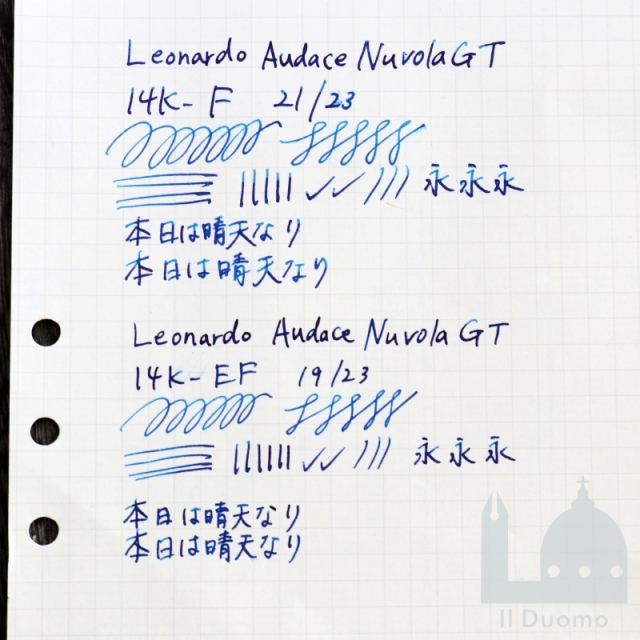 Leonardo Audace Nuvola GT
14K- F 21/23
永永永
本日は晴天なり
本日は晴天なり
Leonardo Audace Nuvola GT
14K- EF 19/23
永永永
本日は晴天なり
本日は晴天なり
Il Duomo